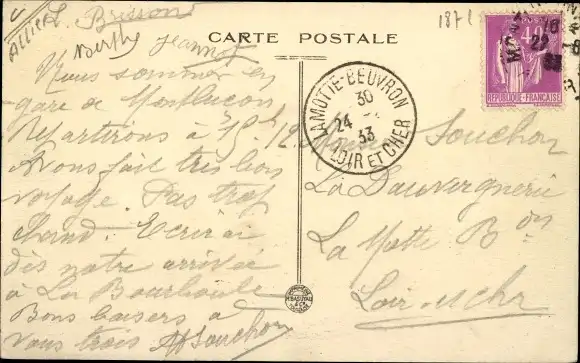 Allier
L. Brisson
Berthe Jeannot
CARTE POSTALE
1871
Nous sommes en
gare de Montlucon
Repartirons à 15h 12
Avons fait très bon
voyage. Pas trop
chaud. Ecrirai
dès notre arrivée
à La Bourboule
Bons baisers à
vous trois ASouchon
LAMOTTE-BEUVRON
30
24
33
LOIR ET CHER
POSTES
40c
REPUBLIQUE-FRANÇAISE
16
22
Souchon
La Dauvergnerie
La Motte Bon
Loir-et-cher